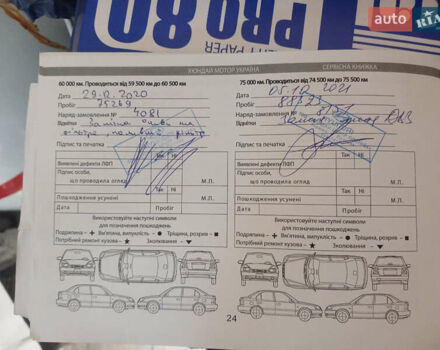 PRO 80
TY PAPER
auto RIA
ХЮНДАЙ МОТОР УКРАЇНА
СЕРВІСНА КНИЖКА
60 000 км. Проводиться від 59 500 км до 60 500 км
Дата 29.12.2020
Пробіг 75269
Наряд-замовлення № 4081
Відмітки Заміна
фільтр
Підпис та печатка
Так Ні
Виявлені дефекти ЛФП
Підпис особи,
що проводила огляд М.П.
Так Ні
Пошкодження усунені М.П.
Дата Пробіг
Використовуйте наступні символи
для позначення пошкоджень
Подряпина - + Вм'ятина, випуклість - ● Тріщина, розрив - ■
Потрібний ремонт кузова - ★ Зколювання - ▼
75 000 км. Проводиться від 74 500 км до 75 500 км
Дата 05.10.2021
Пробіг
Наряд-замовлення №
Відмітки
Підпис та печатка
Так Ні
Виявлені дефекти ЛФП
Підпис особи,
що проводила огляд М.П.
Так Ні
Пошкодження усунені М.П.
Дата Пробіг
Використовуйте наступні символи
для позначення пошкоджень
Подряпина - + Вм'ятина, випуклість - ● Тріщина, розрив - ■
Потрібний ремонт кузова - ★ Зколювання - ▼
24